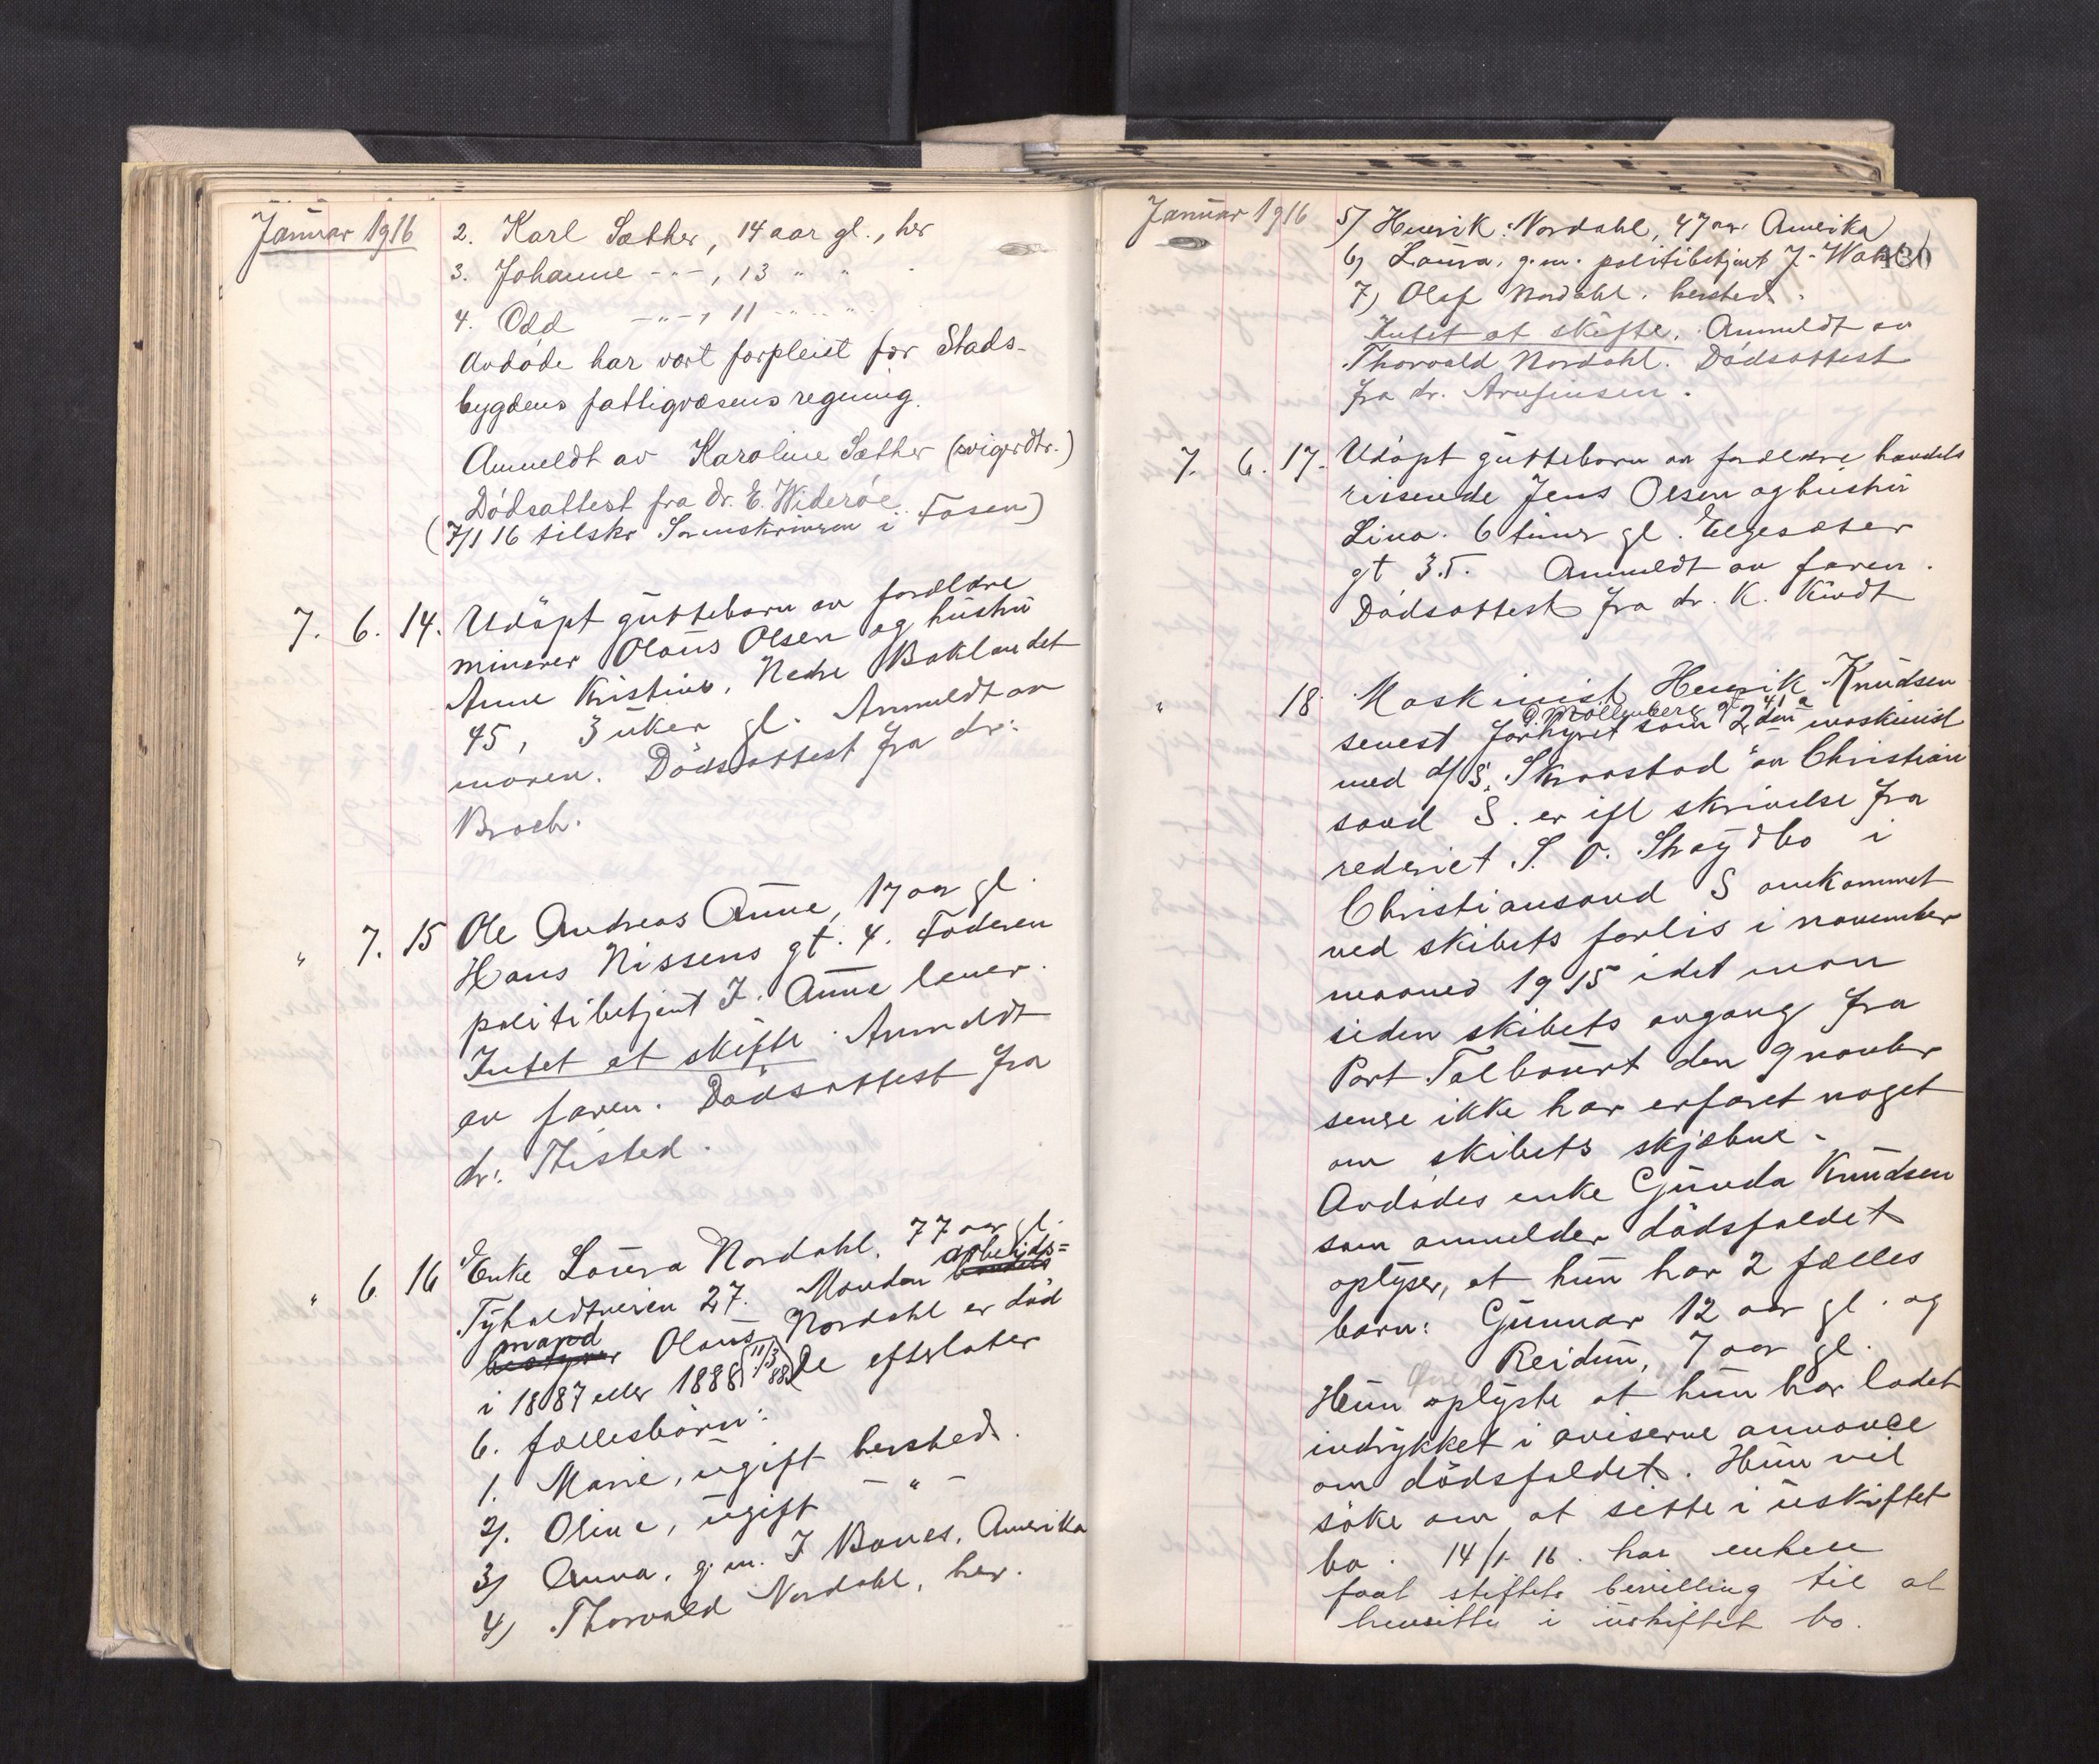 Januar 1916
2. Karl Sæther, 14 aar gl., her
3. Johanne -"-, 13 " "
4. Odd -"-, 11 - " - "
Avdøde har vært forpleiet for Stads-
bygdens fattigvæsens regning.
Anmeldt av Karoline Sæther (svigerdtr.)
Dødsattest fra dr. E. Widerøe
(7/1 16 tilskr Sorenskriveren i Fosen)
7. 6. 14. Udøpt guttebarn av forældre
minerer Olaus Olsen og hustru
Anne Kristine, Nedre Baklandet
45, 3 uker gl. Anmeldt av
moren. Dødsattest fra dr:
Broch.
" 7. 15 Ole Andreas Aune, 17 aar gl.
Hans Nissens gt. 4. Faderen
politibetjent I. Aune lever.
Intet at skifte. Anmeldt
av faren. Dødsattest fra
dr: Thisted.
" 6. 16 Enke Laura Nordahl, 77 aar gl.
Tyholdtveien 27. Manden arbeids=
mand Olaus Nordahl er død
i 1887 eller 1888 (11/3 88) De efterlater
6. fællesbørn:
1. Marie, ugift hersteds.
2/. Oline, ugift - " -
3/ Anna, g. m. I Bones, Amerika
4/ Thorvald Nordahl, her.
Januar 1916
5/ Henrik Nordahl, 47 aar Amerika
430
6/ Laura, g. m. politibetjent J.
7/ Olaf Nordahl. hersted.
Intet at skifte. Anmeldt av
Thorvald Nordahl. Dødsattest
fra dr. Arnfinsen.
7. 6. 17. Udøpt guttebarn av forældre handels
reisende Jens Olsen og hustru
Lina. 6 timer gl. Elgesæter
gt 35. Anmeldt av faren.
Dødsattest fra dr. K. Kindt
" 18 Maskinist Henrik Knudsen
Ø. Møllenberg gt 41 a
senest forhyret som 2den maskinist
med d/S. "Skraastad" av Christian
sand S. er ifl skrivelse fra
rederiet S. O.
i
Christiansand S omkommet
ved skibets forlis i november
maaned 1915 idet man
siden skibets avgang fra
Port Talbourt den 9 novembr
senere ikke har erfaret noget
om skibets skjæbne.-
Avdødes enke Gunda Knudsen
som anmelder dødsfaldet
oplyser, at hun har 2 fælles
barn: Gunnar 12 aar gl. og
Reidun, 7 aar gl.
Hun oplyste at hun har ladet
indrykket i aviserne annonce
om dødsfaldet. Hun vil
søke om at sitte i uskiftet
bo. 14/1 16. har enken
faat stiftets bevilling til at
hensitte i uskiftet bo.